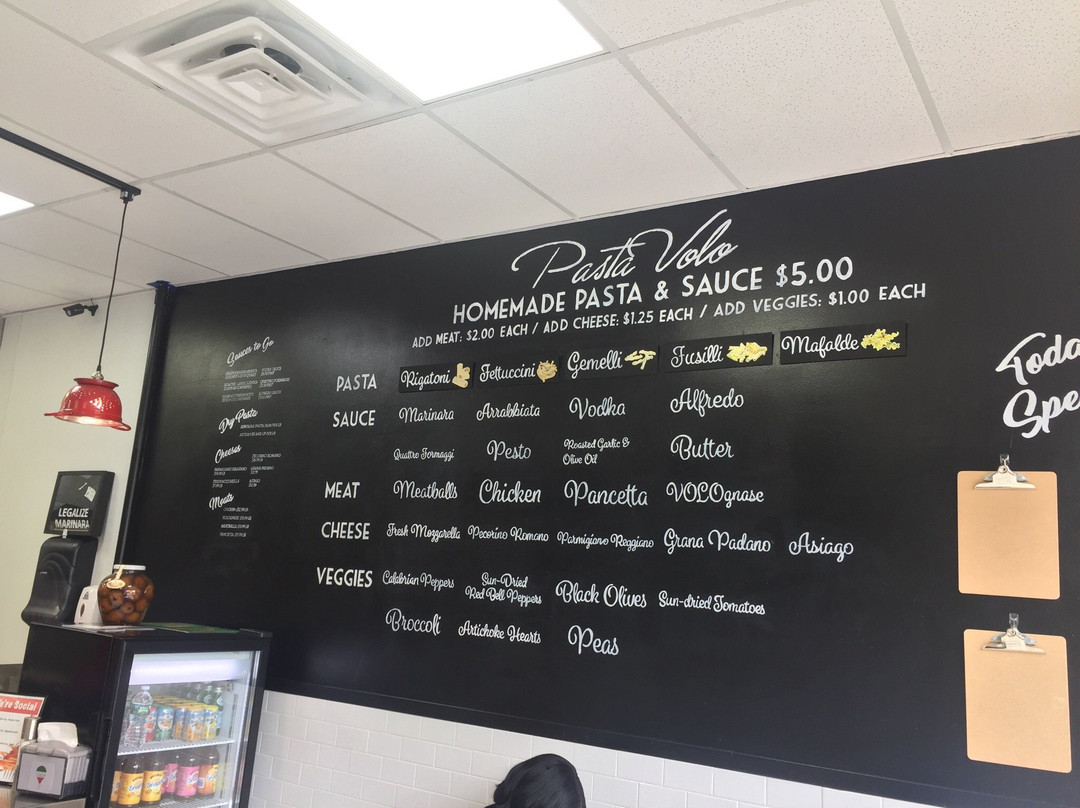 Pasta Volo
HOMEMADE PASTA & SAUCE $5.00
ADD MEAT: $2.00 EACH / ADD CHEESE: $1.25 EACH / ADD VEGGIES: $1.00 EACH
PASTA Rigatoni Fettuccini Gemelli Fusilli Mafalde
SAUCE Marinara Arrabbiata Vodka Alfredo
Quattro Formaggi Pesto Roasted Garlic & Olive Oil Butter
MEAT Meatballs Chicken Pancetta VOLOgnase
CHEESE Fresh Mozzarella Pecorino Romano Parmigiano Reggiano Grana Padano Asiago
VEGGIES Calabrian Peppers Sun-Dried Red Bell Peppers Black Olives Sun-dried Tomatoes
Broccoli Artichoke Hearts Peas
Sauces to Go
Dry Pasta
Cheeses
Meats
Toda
Spe
LEGALIZE
MARINARA
're Social